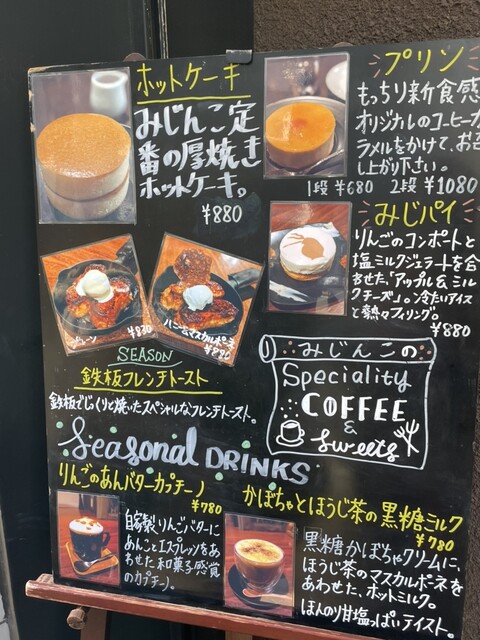 ホットケーキ
みじんこ定
番の厚焼き
ホットケーキ。
¥880
プリン
もっちり新食感
オリジナルのコーヒーカ
ラメルをかけて、お召
し上がり下さい。
1段 ¥680 2段 ¥1080
みじパイ
りんごのコンポートと
塩ミルクジェラートを合
わせた、"アップル&ミル
クチーズ"。冷たいアイス
と熱々フィリング。
¥880
プレーン ¥830
ハニー&マスカルポーネ
¥890
SEASON
鉄板フレンチトースト
鉄板でじっくりと焼いたスペシャルなフレンチトースト。
みじんこの
Speciality
COFFEE
&
Sweets
Seasonal DRINKS
りんごのあんバターカプチーノ
¥780
自家製りんごバターに
あんことエスプレッソをあ
わせた和菓子感覚
のカプチーノ。
かぼちゃとほうじ茶の黒糖ミルク
¥780
黒糖かぼちゃクリームに、
ほうじ茶のマスカルポーネを
あわせた、ホットミルク。
ほんのり甘塩っぱいテイスト。